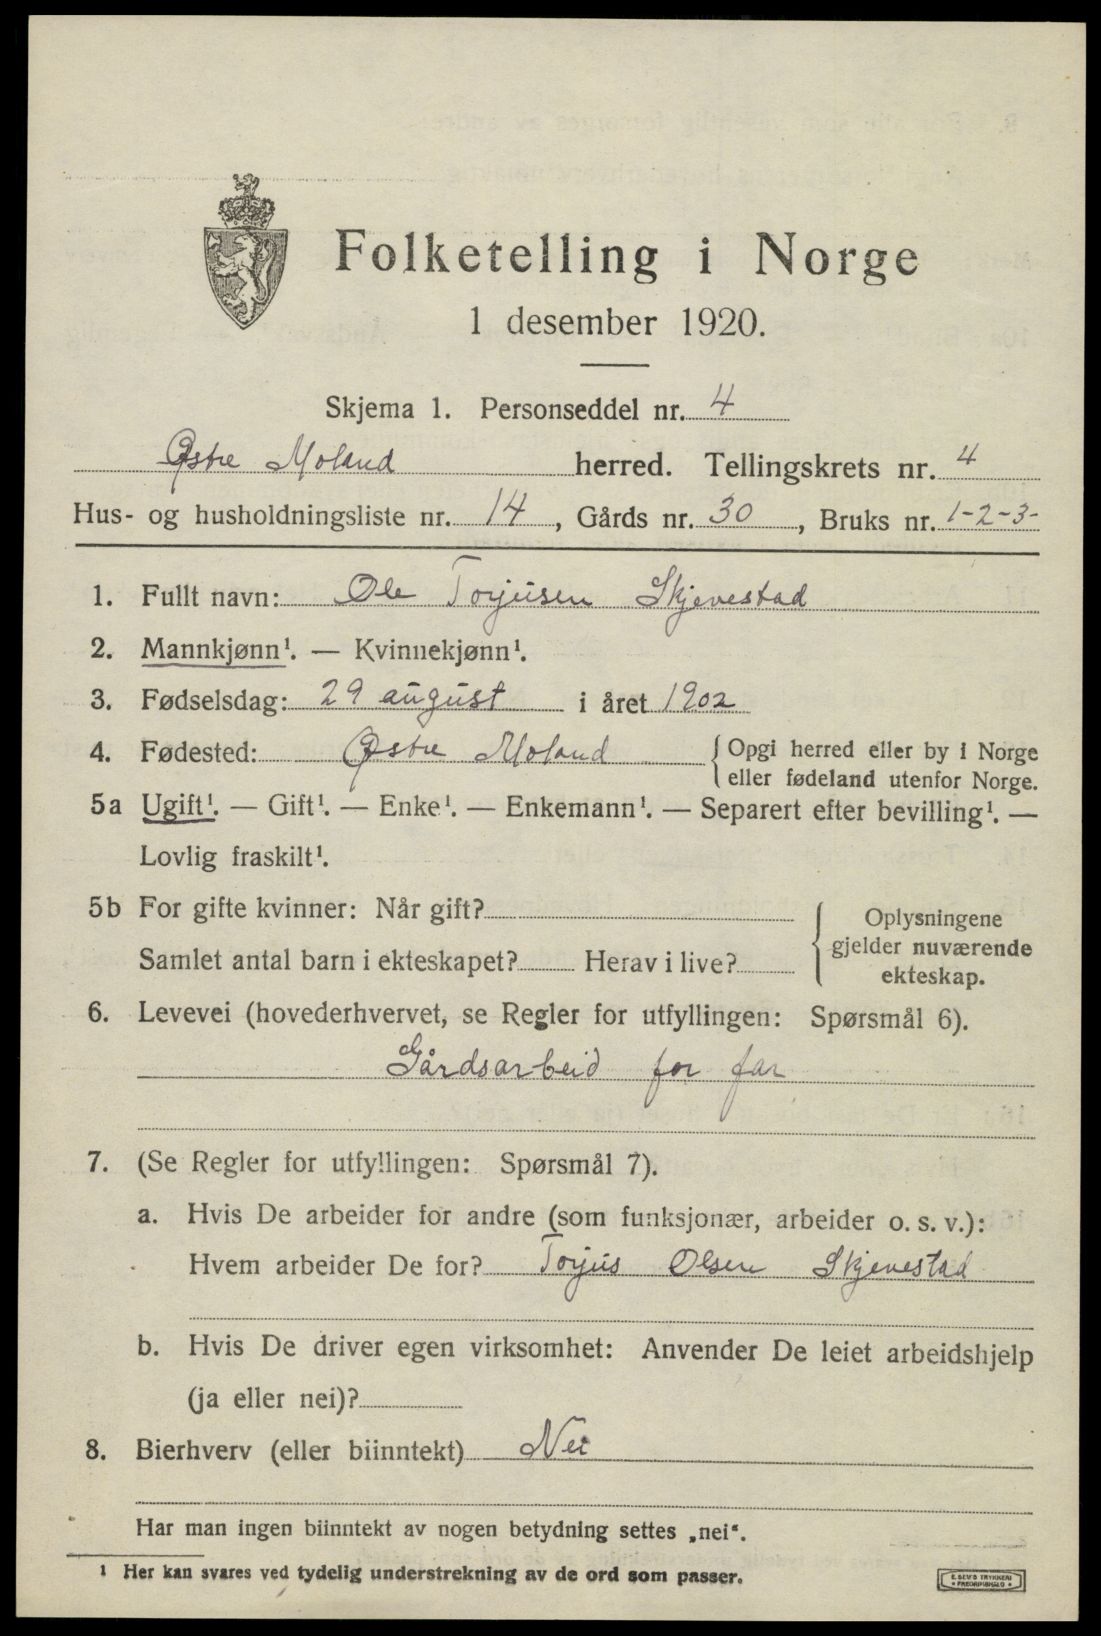 Folketelling i Norge
1 desember 1920.
Skjema 1. Personseddel nr. 4
Østre Moland herred. Tellingskrets nr. 4
Hus- og husholdningsliste nr. 14, Gårds nr. 30, Bruks nr. 1-2-3-
1. Fullt navn: Ole Torjusen Skjevestad
2. Mannkjønn¹. — Kvinnekjønn¹.
3. Fødselsdag: 29 august i året 1902
4. Fødested: Østre Moland { Opgi herred eller by i Norge
eller fødeland utenfor Norge.
5a Ugift¹. — Gift¹. — Enke¹. — Enkemann¹. — Separert efter bevilling¹. —
Lovlig fraskilt¹.
5b For gifte kvinner: Når gift?
Samlet antal barn i ekteskapet? Herav i live?
{ Oplysningene
gjelder nuværende
ekteskap.
6. Levevei (hovederhvervet, se Regler for utfyllingen: Spørsmål 6).
Gårdsarbeid for far
7. (Se Regler for utfyllingen: Spørsmål 7).
a. Hvis De arbeider for andre (som funksjonær, arbeider o. s. v.):
Hvem arbeider De for? Torjus Olsen Skjevestad
b. Hvis De driver egen virksomhet: Anvender De leiet arbeidshjelp
(ja eller nei)?
8. Bierhverv (eller biinntekt) Nei
Har man ingen biinntekt av nogen betydning settes „nei“.
¹ Her kan svares ved tydelig understrekning av de ord som passer.